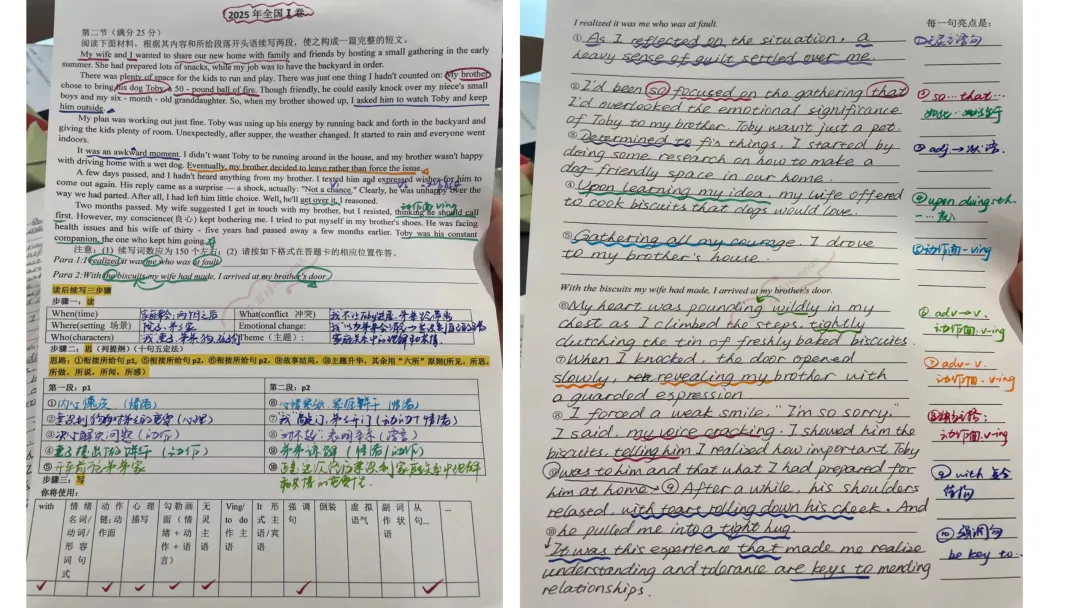 2025 年全国 I 卷
第二节（满分 25 分）
阅读下面材料，根据其内容和所给段落开头语续写两段，使之构成一篇完整的短文。
My wife and I wanted to share our new home with family and friends by hosting a small gathering in the early
summer. She had prepared lots of snacks, while my job was to have the backyard in order.
There was plenty of space for the kids to run and play. There was just one thing I hadn't counted on: My brother
chose to bring his dog Toby, a 50 - pound ball of fire. Though friendly, he could easily knock over my niece's small
boys and my six - month - old granddaughter. So, when my brother showed up, I asked him to watch Toby and keep
him outside.
My plan was working out just fine. Toby was using up his energy by running back and forth in the backyard and
giving the kids plenty of room. Unexpectedly, after supper, the weather changed. It started to rain and everyone went
indoors.
It was an awkward moment. I didn't want Toby to be running around in the house, and my brother wasn't happy
with driving home with a wet dog. Eventually, my brother decided to leave rather than force the issue.
A few days passed, and I hadn't heard anything from my brother. I texted him and expressed wishes for him to
come out again. His reply came as a surprise — a shock, actually: "Not a chance." Clearly, he was unhappy over the
way we had parted. After all, I had left him little choice. Well, he'll get over it, I reasoned.
动作面 v-ing
Two months passed. My wife suggested I get in touch with my brother, but I resisted, thinking he should call
first. However, my conscience(良心) kept bothering me. I tried to put myself in my brother's shoes. He was facing
health issues and his wife of thirty - five years had passed away a few months earlier. Toby was his constant
companion, the one who kept him going.
注意：(1) 续写词数应为 150 个左右；(2) 请按如下格式在答题卡的相应位置作答。
Para 1:I realized it was me who was at fault.
Para 2:With the biscuits my wife had made, I arrived at my brother's door.
读后续写三步骤
步骤一：读
When(time) What(conflict 冲突)
Where(setting 场景) Emotional change:
Who(characters) Theme（主题）:
步骤二：思（列提纲）（十句五定法）
思路：①衔接所给句 p1，⑤衔接所给句 p2，⑥衔接所给句 p2，⑨故事结局，⑩主题升华，其余用"六所"原则(所见，所思，
所做，所说，所闻，所感)
第一段：p1 第二段：p2
①内心愧疚（情绪）
③决心解决问题（动作）
步骤三：写
你将使用：
with 情绪名词/动词/形容词句式 动作链;动作面 心理描写 勾勒画面（情绪+动作+语言） 无灵主语 Ving/to do作主语 It形式主语/宾语 强调句 倒装 虚拟语气 副词作状语 从句... ...
I realized it was me who was at fault.
每一句亮点是:
① As I reflected on the situation, a
①无灵主语句
heavy sense of guilt settled over me.
② I'd been so focused on the gathering that
② so…that…
I'd overlooked the emotional significance
of Toby to my brother. Toby wasn't just a pet.
③ Determined to fix things, I started by
③ adj→状语.
doing some research on how to make a
dog-friendly space in our home.
④ Upon learning my idea, my wife offered
④ upon doing sth.
to cook biscuits that dogs would love.
⑤ Gathering all my courage, I drove
⑤动作面-ving
to my brother's house.
With the biscuits my wife had made, I arrived at my brother's door.
⑥ My heart was pounding wildly in my
⑥ adv→v.
chest as I climbed the steps, tightly
动作面. v-ing
clutching the tin of freshly baked biscuits.
⑦ When I knocked, the door opened
⑦ adv-v.
slowly, revealing my brother with
动作面. v-ing
a guarded expression
⑧ I forced a weak smile, "I'm so sorry,"
⑧独立主格:
I said, my voice cracking. I showed him the
动作面.v-ing
biscuits, telling him I realized how important Toby
was to him and that what I had prepared for
him at home. ⑨ After a while, his shoulders
⑨ with 复合结构
relaxed, with tears rolling down his cheek. And
he pulled me into a tight hug.
⑩ It was this experience that made me realize
⑩ 强调句
understanding and tolerance are keys to mending
be key to…
relationships.